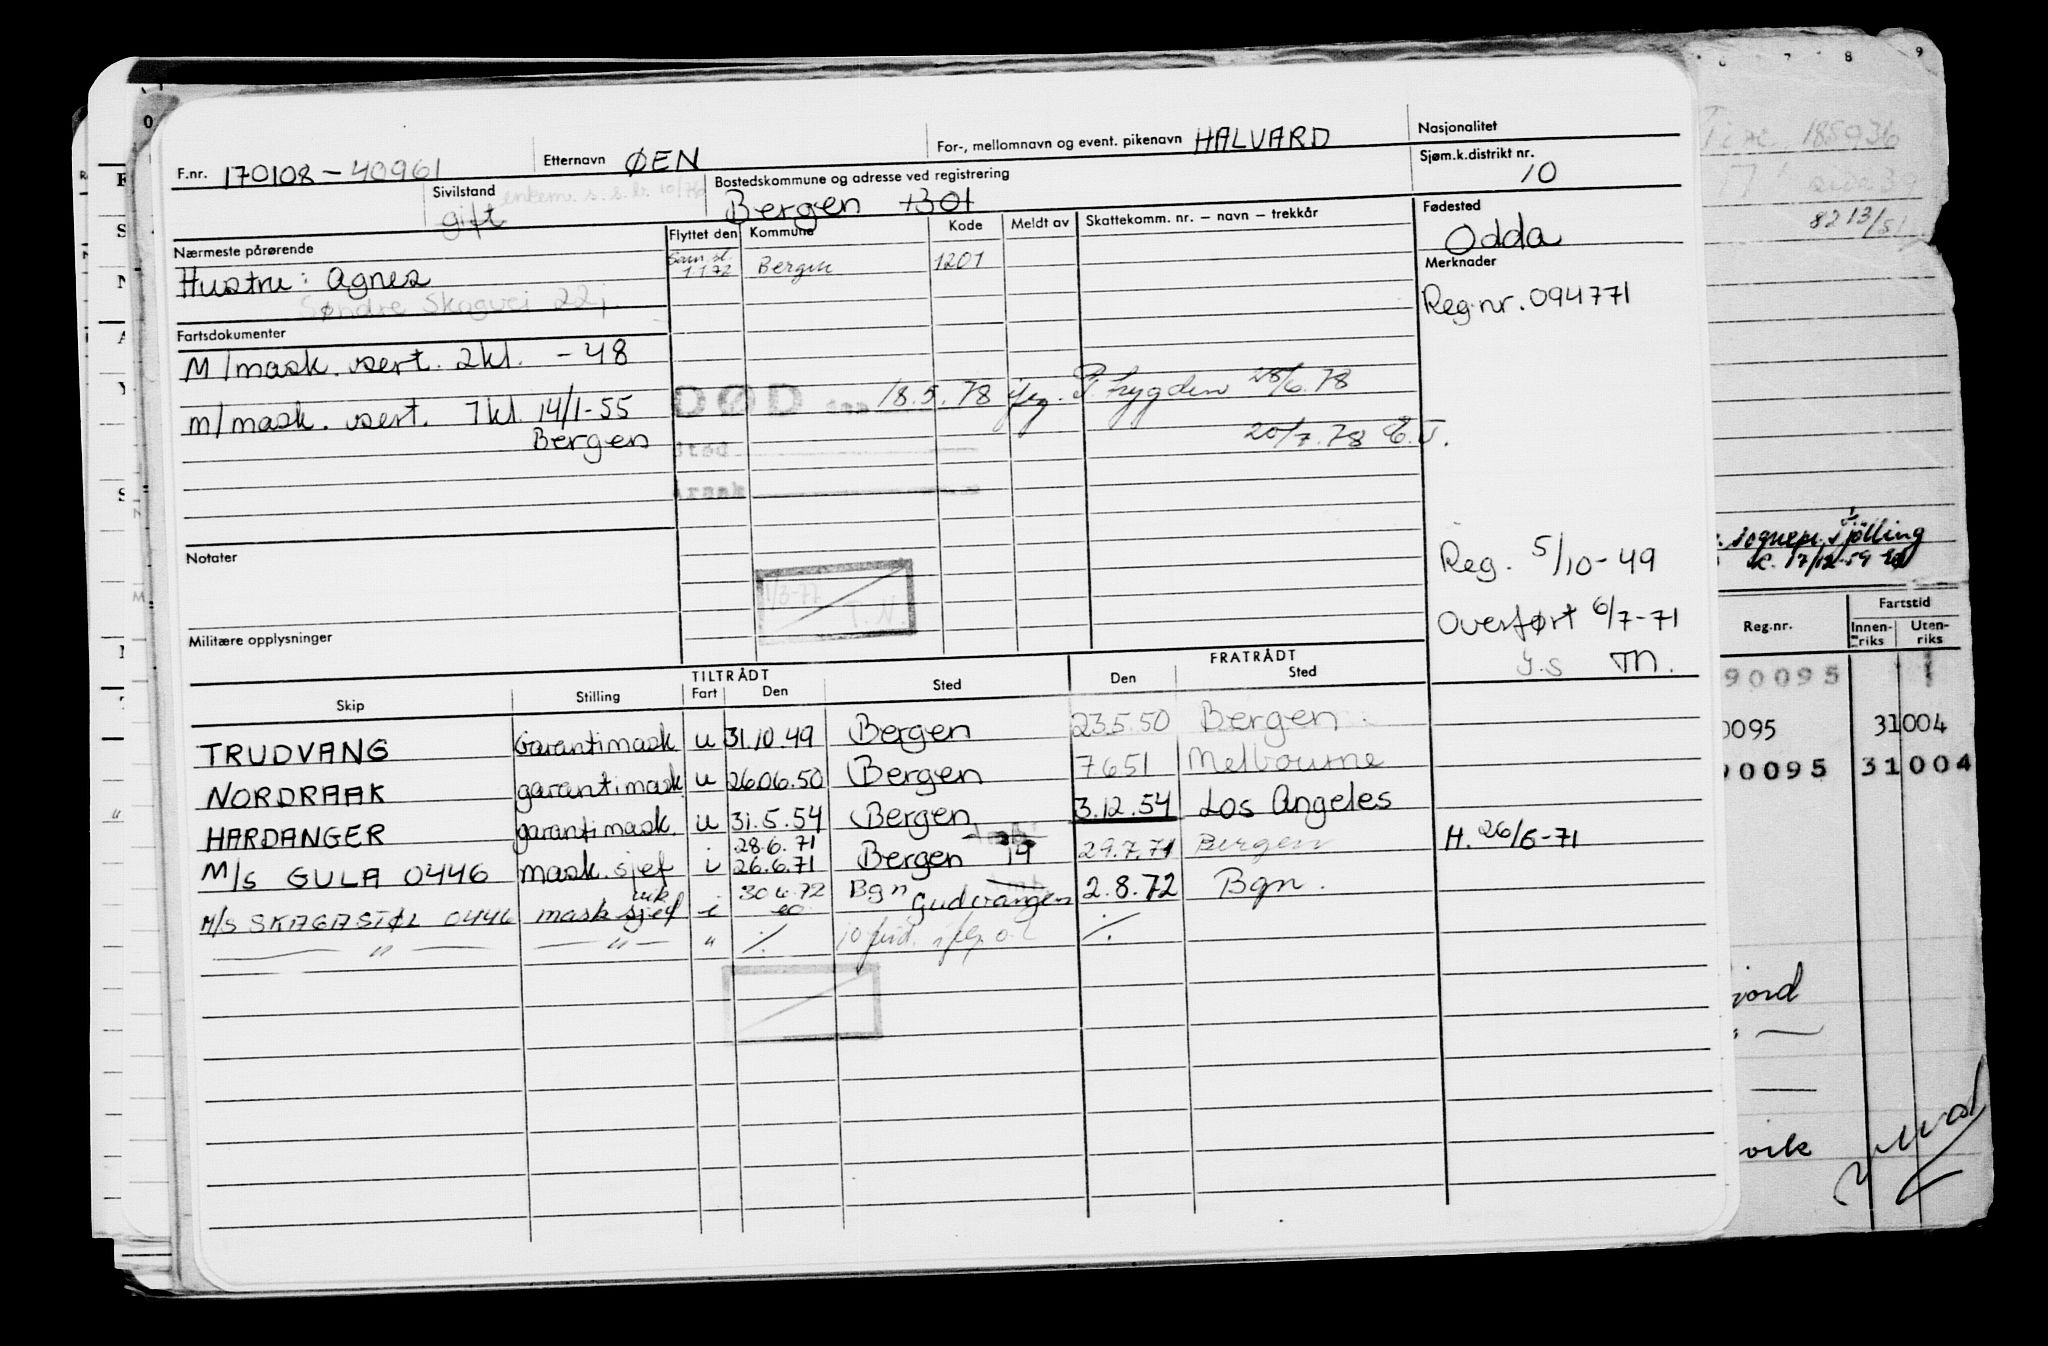 F.nr. 170108-40961 Etternavn ØEN For-, mellomnavn og event. pikenavn HALVARD Nasjonalitet
Sivilstand gift enkem. Bostedskommune og adresse ved registrering Bergen 1301 Sjøm.k.distrikt nr. 10
Nærmeste pårørende Flyttet den Kommune Kode Meldt av Skattekomm. nr. – navn – trekkår Fødested
Hustru: Agnes Sam.sl. 1.1.72 Bergen 1201 Odda
Søndre Skogvei 22, Merknader
Fartsdokumenter Reg.nr. 094771
M/mask. sert. 2kl. - 48
DØD 18.5.78 flg. Trygden 28/6.78
m/mask. sert. 1kl. 14/1-55
Bergen 20/7.78 E.T.
sted
årsak
Notater Reg. 5/10-49
1/3-77 T.N.
Militære opplysninger Overført 6/7-71
J.S M.
TILTRÅDT FRATRÅDT
Skip Stilling Fart Den Sted Den Sted
TRUDVANG Garantimask u 31.10.49 Bergen 23.5.50 Bergen
NORDRAAK garantimask u 26.06.50 Bergen 7.6.51 Melbourne
HARDANGER garantimask. u 31.5.54 Bergen 3.12.54 Los Angeles
28.6.71
M/S GULA 0446 mask.sjef i 26.6.71 Bergen 19 29.7.71 Bergen H. 26/6-71
vik 30.6.72 Bgn
M/S SKAGASTØL 0446 mask sjef i Gudvangen 2.8.72 Bgn.
— " — — " — " ./. ./.
6 7 8 9
185936
17 side 39
8213/51
sognepr. Tjølling
17/12-59
Reg.nr. Fartstid
Innenriks Utenriks
90095
0095 31004
90095 31004
vik